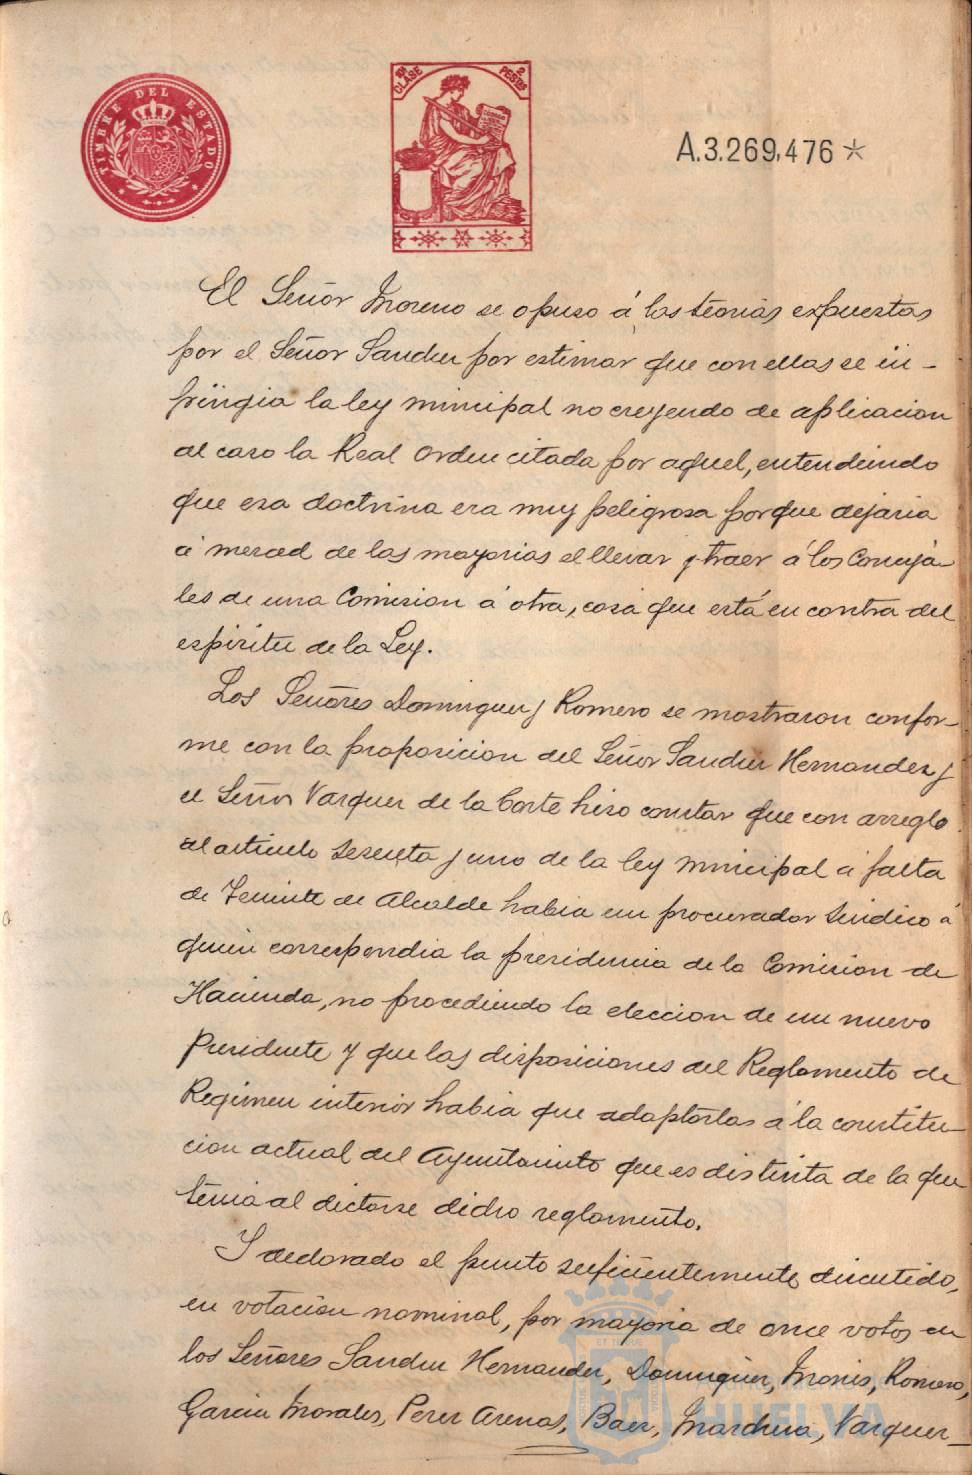 TIMBRE DEL ESTADO
11ª CLASE
2 PESETAS
A.3.269,476 *
El Señor Moreno se opuso á las teorias expuestas
por el Señor Sanchez por estimar que con ellas se in-
fringia la ley municipal no creyendo de aplicacion
al caso la Real Orden citada por aquel, entendiendo
que esa doctrina era muy peligrosa porque dejaria
á merced de las mayorias el llevar y traer á los Conceja-
les de una Comision á otra, cosa que está en contra del
espiritu de la Ley.
Los Señores Dominguez y Romero se mostraron confor-
me con la proposicion del Señor Sanchez Hernandez y
el Señor Vazquez de la Corte hizo constar que con arreglo
al articulo sesenta y uno de la ley municipal á falta
de Teniente de Alcalde habia un procurador Sindico á
quien correspondia la presidencia de la Comision de
Hacienda, no procediendo la eleccion de un nuevo
Presidente y que las disposiciones del Reglamento de
Regimen interior habia que adaptarlas á la constitu
cion actual del Ayuntamiento que es distinta de la que
tenia al dictarse dicho reglamento.
Y declarado el punto suficientemente discutido,
en votacion nominal, por mayoria de once votos en
los Señores Sanchez Hernandez, Dominguez, Monis, Romero,
Garcia Morales, Perez Arenas, Baez, Marchena, Vazquez
HUELVA